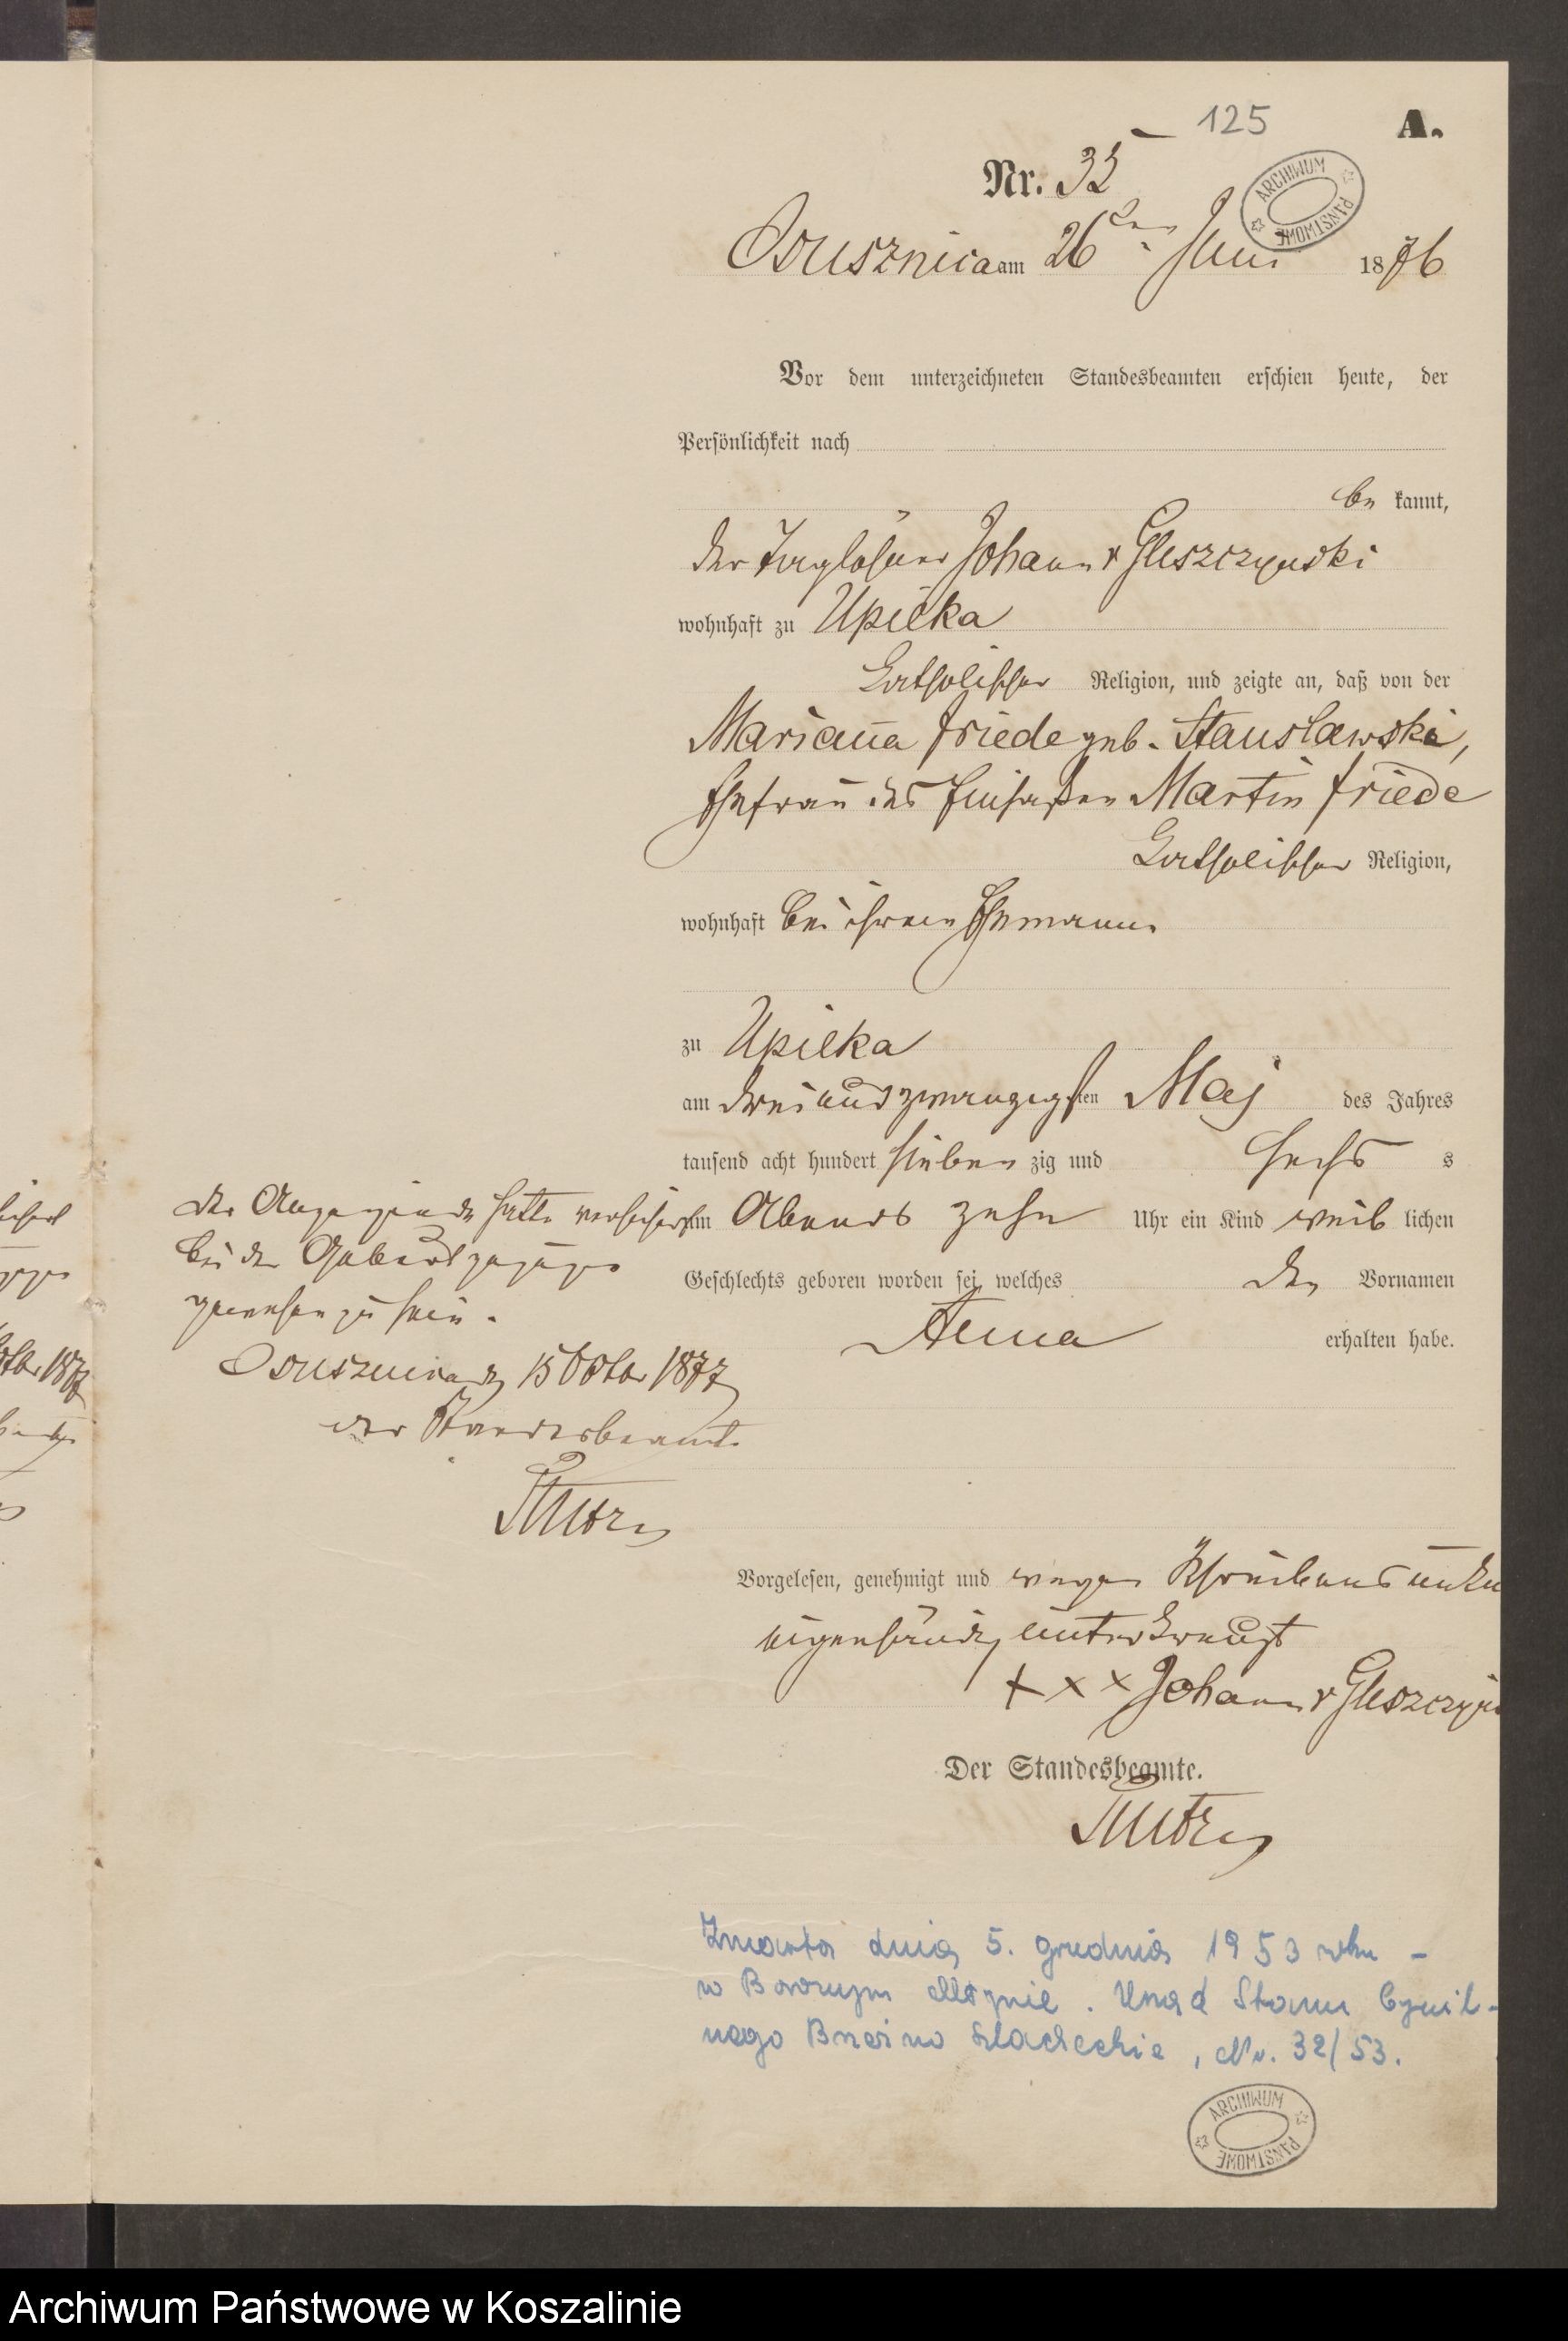 125
A.
Nr. 35
ARCHIWUM PAŃSTWOWE
Osusznica am 26ten Juni 1876
Vor dem unterzeichneten Standesbeamten erschien heute, der
Persönlichkeit nach
be kannt,
der Tagelöhner Johann v Gleszczynski
wohnhaft zu Upilka
katholischer Religion, und zeigte an, daß von der
Marianna Friede geb. Stanslawska,
Ehefrau des Einsaßen Martin Friede
katholischer Religion,
wohnhaft bei ihrem Ehemann
zu Upilka
am dreiundzwanzigsten Maj des Jahres
tausend acht hundert sieben zig und sechs s
um Abends zehn Uhr ein Kind weib lichen
Geschlechts geboren worden sei, welches den Vornamen
Anna erhalten habe.
Der Anzeigende hatte versichert
bei der Geburt zugegen
gewesen zu sein.
Osusznica d 15 Octbr 1877
der Standesbeamte
Vorgelesen, genehmigt und wegen Schreibensunku
eigenhändig unterkreuzt
+ x x Johann v Gleszczyn
Der Standesbeamte.
Zmarła dnia 5. grudnia 1953 roku –
w Borowym Młynie. Urząd Stanu Cywil-
nego Brzeźno Szlacheckie, Nr. 32/53.
ARCHIWUM PAŃSTWOWE
Archiwum Państwowe w Koszalinie